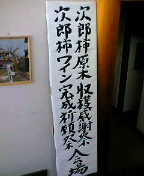 次郎柿原木 収穫感謝祭
次郎柿ワイン完成祈願祭
会場